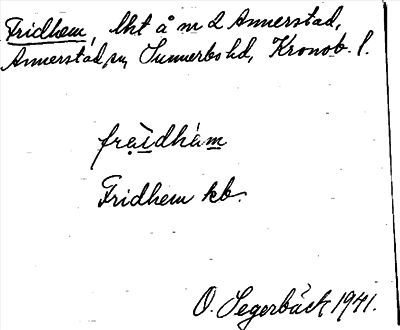 Fridhem, lht å m 2 Annerstad,
Annerstad sn, Sunnerbo hd, Kronob. l.
fraìdhàm
Fridhem kb.
O. Segerbäck 1941.